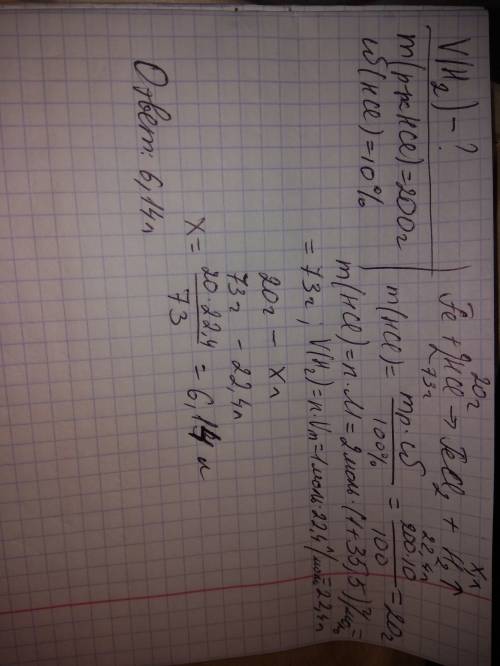 V(H₂) - ?
m(р-ра HCl) = 200г
ω(HCl) = 10%
20г xл
Fe + 2HCl → FeCl₂ + H₂↑
73г 22,4л
m(HCl) = mр·ω / 100% = 200·10 / 100 = 20г
m(HCl) = n·M = 2моль·(1+35,5) г/моль =
= 73г; V(H₂) = n·Vm = 1моль·22,4 л/моль = 22,4л
20г - xл
73г - 22,4л
x = 20·22,4 / 73 = 6,14 л
Ответ: 6,14л